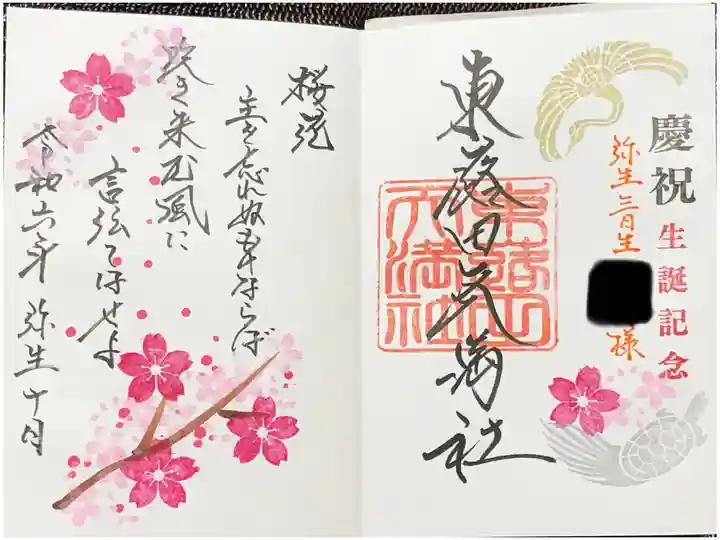 慶祝生誕記念
弥生三日生
様
東蕗田天満社
東蕗田
天満社
桜花
主を忘れぬものならば
吹き来む風に
言伝てはせよ
令和六年 弥生十日